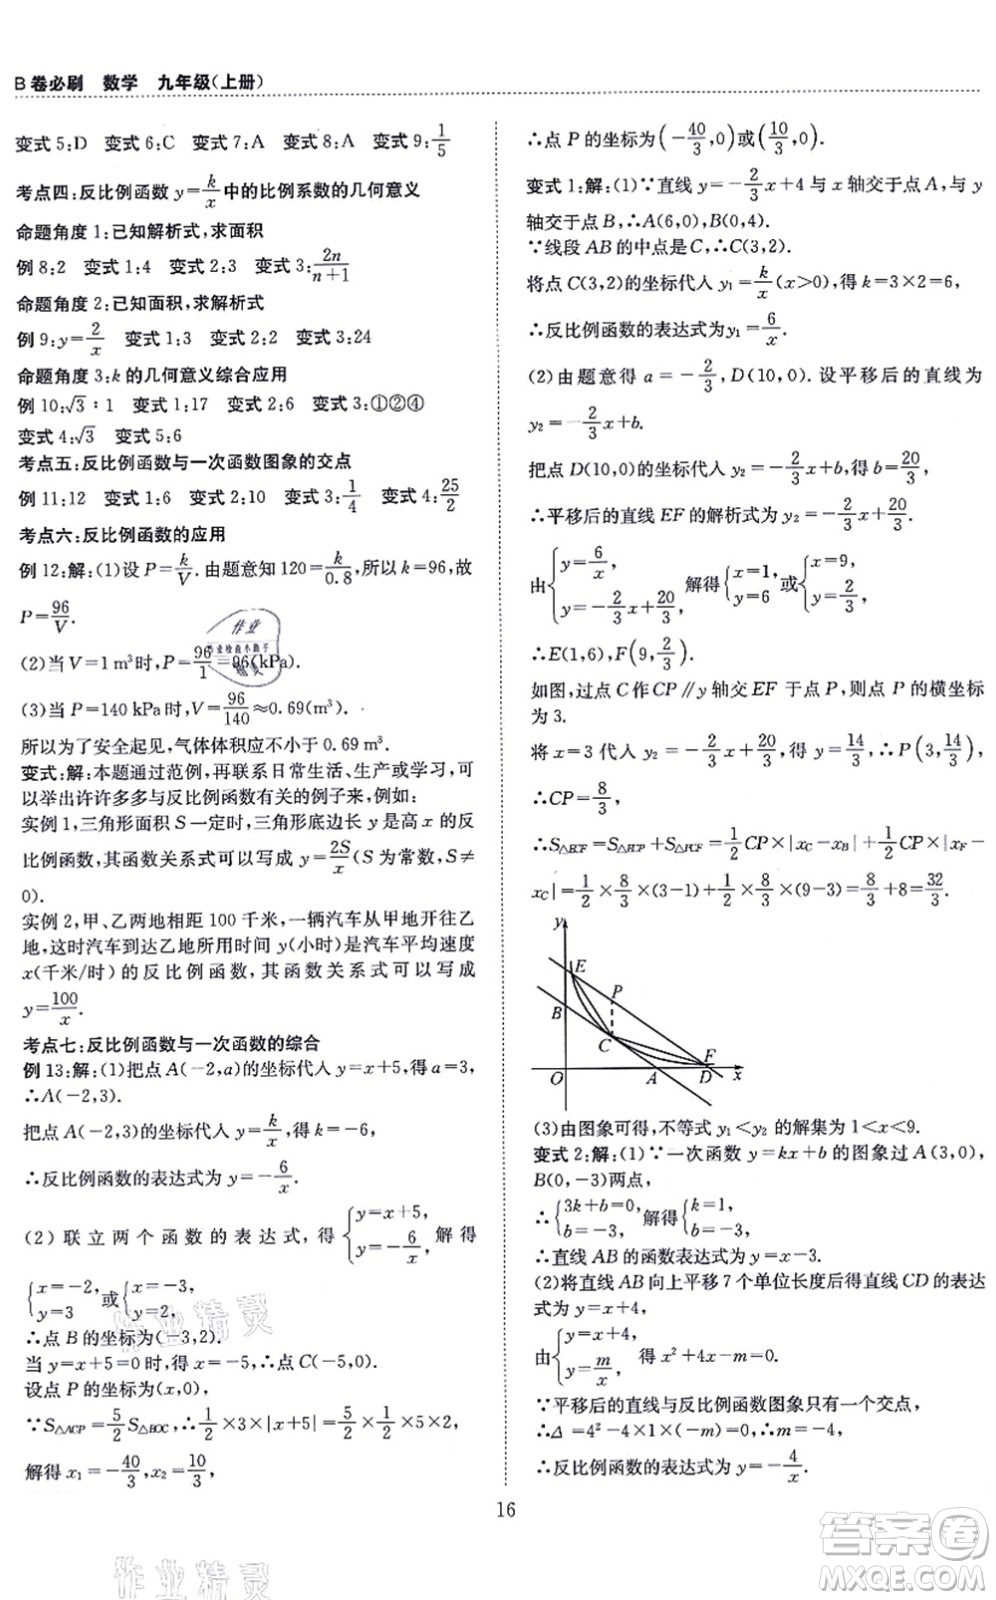 B卷必刷　数学　九年级(上册)
变式5:D　变式6:C　变式7:A　变式8:A　变式9:1/5
考点四:反比例函数y=k/x中的比例系数的几何意义
命题角度1:已知解析式,求面积
例8:2　变式1:4　变式2:3　变式3:2n/(n+1)
命题角度2:已知面积,求解析式
例9:y=2/x　变式1:3　变式2:2　变式3:24
命题角度3:k的几何意义综合应用
例10:√3∶1　变式1:7　变式2:6　变式3:①②④
变式4:√3　变式5:6
考点五:反比例函数与一次函数图象的交点
例11:12　变式1:6　变式2:10　变式3:1/4　变式4:25/2
考点六:反比例函数的应用
例12:解:(1)设P=k/V.由题意知120=k/0.8,所以k=96,故
P=96/V.
(2)当V=1 m³时,P=96/1=96(kPa).
(3)当P=140 kPa时,V=96/140≈0.69(m³).
所以为了安全起见,气体体积应不小于0.69 m³.
变式:解:本题通过范例,再联系日常生活、生产或学习,可
以举出许许多多与反比例函数有关的例子来,例如:
实例1,三角形面积S一定时,三角形底边长y是高x的反
比例函数,其函数关系式可以写成y=2S/x(S为常数,S≠
0).
实例2,甲、乙两地相距100千米,一辆汽车从甲地开往乙
地,这时汽车到达乙地所用时间y(小时)是汽车平均速度
x(千米/时)的反比例函数,其函数关系式可以写成
y=100/x.
考点七:反比例函数与一次函数的综合
例13:解:(1)把点A(-2,a)的坐标代入y=x+5,得a=3,
∴A(-2,3).
把点A(-2,3)的坐标代入y=k/x,得k=-6,
∴反比例函数的表达式为y=-6/x.
(2)联立两个函数的表达式,得{y=x+5, y=-6/x, 解得
{x=-2, y=3 或{x=-3, y=2,
∴点B的坐标为(-3,2).
当y=x+5=0时,得x=-5,∴点C(-5,0).
设点P的坐标为(x,0),
∵S△ACP=5/2 S△BOC,∴1/2×3×|x+5|=5/2×1/2×5×2,
解得x₁=-40/3,x₂=10/3,
∴点P的坐标为(-40/3,0)或(10/3,0).
变式1:解:(1)∵直线y=-2/3x+4与x轴交于点A,与y
轴交于点B,∴A(6,0),B(0,4).
∵线段AB的中点是C,∴C(3,2).
将点C(3,2)的坐标代入y₁=k/x(x>0),得k=3×2=6,
∴反比例函数的表达式为y₁=6/x.
(2)由题意得a=-2/3,D(10,0).设平移后的直线为
y₂=-2/3x+b.
把点D(10,0)的坐标代入y₂=-2/3x+b,得b=20/3,
∴平移后的直线EF的解析式为y₂=-2/3x+20/3.
由{y=6/x, y=-2/3x+20/3, 解得{x=1, y=6 或{x=9, y=2/3,
∴E(1,6),F(9,2/3).
如图,过点C作CP∥y轴交EF于点P,则点P的横坐标
为3.
将x=3代入y₂=-2/3x+20/3,得y=14/3,∴P(3,14/3),
∴CP=8/3,
∴S△ECF=S△ECP+S△PCF=1/2CP×|x_C-x_B|+1/2CP×|x_F-
x_C|=1/2×8/3×(3-1)+1/2×8/3×(9-3)=8/3+8=32/3.
y
E
B
P
C
F
O
A
D
x
(3)由图象可得,不等式y₁<y₂的解集为1<x<9.
变式2:解:(1)∵一次函数y=kx+b的图象过A(3,0),
B(0,-3)两点,
∴{3k+b=0, b=-3, 解得{k=1, b=-3,
∴直线AB的函数表达式为y=x-3.
(2)将直线AB向上平移7个单位长度后得直线CD的表达
式为y=x+4,
由{y=x+4, y=m/x, 得x²+4x-m=0.
∵平移后的直线与反比例函数图象只有一个交点,
∴Δ=4²-4×1×(-m)=0,∴m=-4,
∴反比例函数的表达式为y=-4/x.
16
作业精灵
作业精灵
答案卷
MXQE.COM